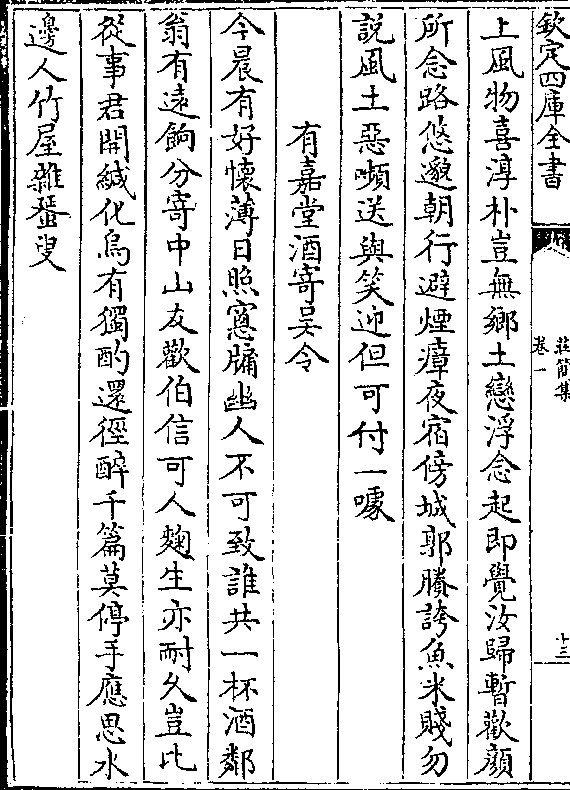 欽定四庫全書
莊簡集
卷一
十三
上風物喜淳朴豈無鄉土戀浮念起即覺汝歸暫歡顔
所念路悠邈朝行避煙瘴夜宿傍城郭賸誇魚米賤勿
説風土惡嚬送與笑迎但可付一噱
有嘉堂酒寄吴令
今晨有好懷薄日照窻牖幽人不可致誰共一杯酒鄰
翁有遠餉分寄中山友歡伯信可人麴生亦耐久豈比
從事君開緘化烏有獨酌還徑醉千篇莫停手應思水
邊人竹屋雜蜑叟